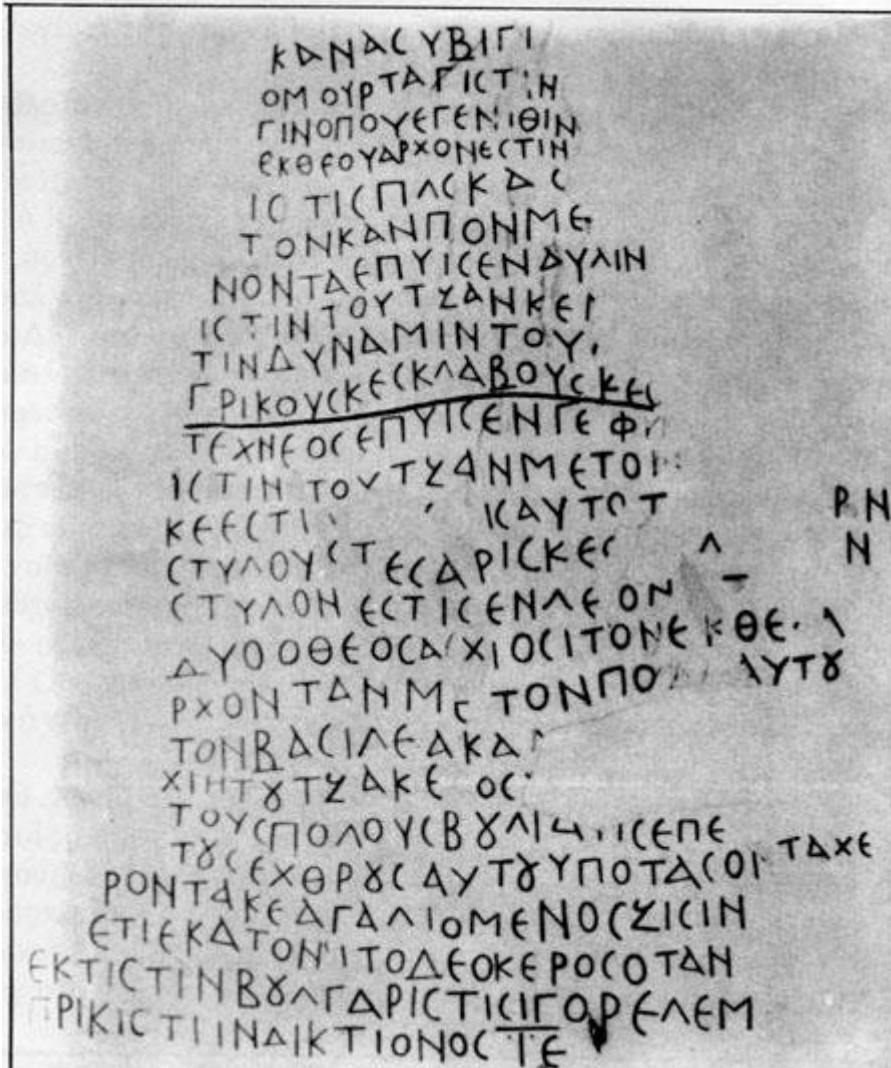 ΚΑΝΑCΥΒΙΓΙ
ΟΜΟΥΡΤΑΓΙCΤΙΝ
ΓΙΝΟΠΟΥΕΓΕΝΙΘΙΝ
ΕΚΘΕΟΥΑΡΧΟΝΕCΤΙΝ
ΙC ΤΙCΠΛCΚΑC
ΤΟΝΚΑΝΠΟΝΜΕ
ΝΟΝΤΑΕΠΥΙCΕΝΑΥΛΙΝ
ΙCΤΙΝΤΟΥΤΖΑΝΚΕΙ
ΤΙΝΔΥΝΑΜΙΝΤΟΥ
ΓΡΙΚΟΥCΚΕCΚΛΑΒΟΥCΚΕC
ΤΕΧΝΕΟCΕΠΥΙCΕΝΓΕΦ
ΙCΤΙΝΤΟΥΤΖΑΝΜΕΤΟΙ
ΚΕΕCΤΙ ΙCΑΥΤΟΤ ΡΝ
CΤΥΛΟΥCΤΕCΑΡΙCΚΕC Λ Ν
CΤΥΛΟΝΕCΤΙCΕΝΛΕΟΝ Τ
ΔΥΟΟΘΕΟCΑ ΧΙΟCΙΤΟΝΕΚΘΕ Α
ΡΧΟΝΤΑΝΜΕΤΟΝΠΟΔΑΑΥΤȢ
ΤΟΝΒΑCΙΛΕΑΚΑΓ
ΧΙΗΤȢΤΖΑΚΕ ΟC
ΤΟΥCΠΟΛΟΥCΒȢΛΙ ΙCΕΠΕ
ΤȢCΕΧΘΡȢCΑΥΤȢΥΠΟΤΑCΟΙΤΑΧΕ
ΡΟΝΤΑΚΕΑΓΑΛΙΟΜΕΝΟCΖΙCΙΝ
ΕΤΙΕΚΑΤΟΝΙΤΟΔΕΟΚΕΡΟCΟΤΑΝ
ΕΚΤΙCΤΙΝΒȢΛΓΑΡΙCΤΙCΙΓΟΡΕΛΕΜ
ΠΡΙΚΙCΤΙΙΝΔΙΚΤΙΟΝΟCΤΕ